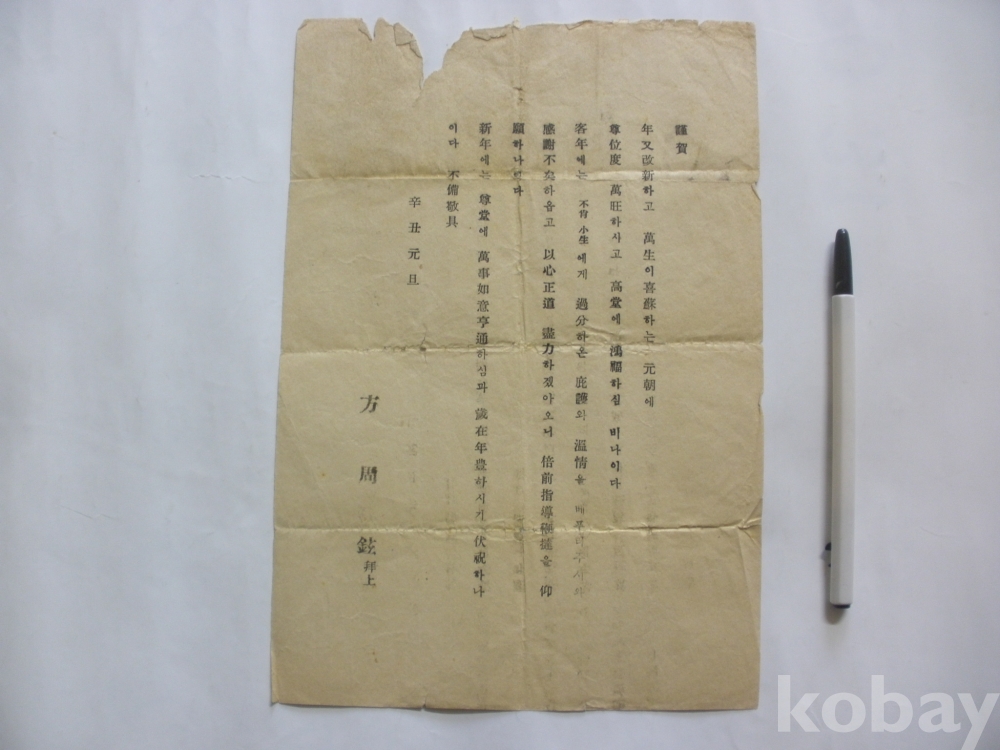 謹賀
年又改新하고 萬生이喜蘇하는 元朝에
尊位度 萬旺하사고 高堂에 鴻福하심 비나이다
客年에는 不肖小生에게 過分하온 庇護와 溫情을
感謝不矣하옵고 以心正道 盡力하겠아오니 倍前指導 을 仰
願하나이다
新年에는 尊堂에 萬事如意亨通하심과 歲在年豊하시기 伏祝하나
이다 不備敬具
辛丑元旦
方周鉉 拜上
kobay